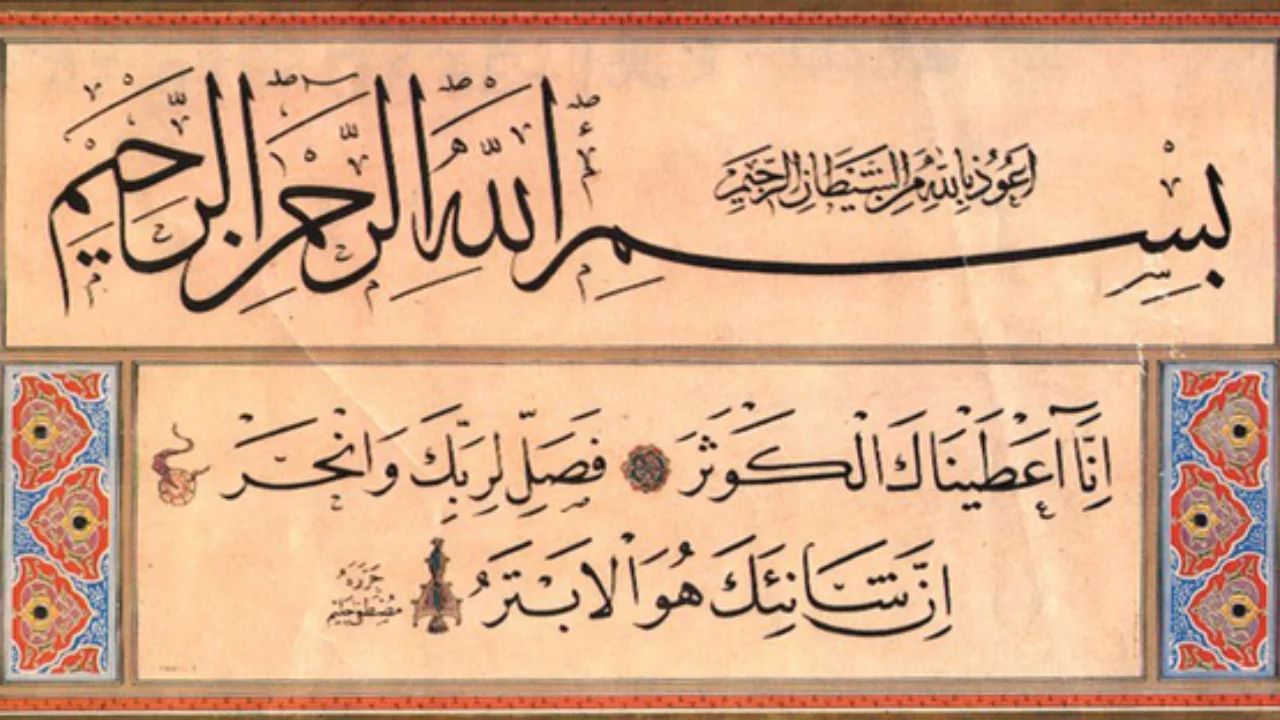 اعوذ بالله من الشيطان الرجيم
بسم الله الرحمن الرحيم
اِنَّا اَعْطَيْنَاكَ الْكَوْثَرَ فَصَلِّ لِرَبِّكَ وَانْحَرْ
اِنَّ شَانِئَكَ هُوَ الْاَبْتَرُ
حرره
مصطفى حليم